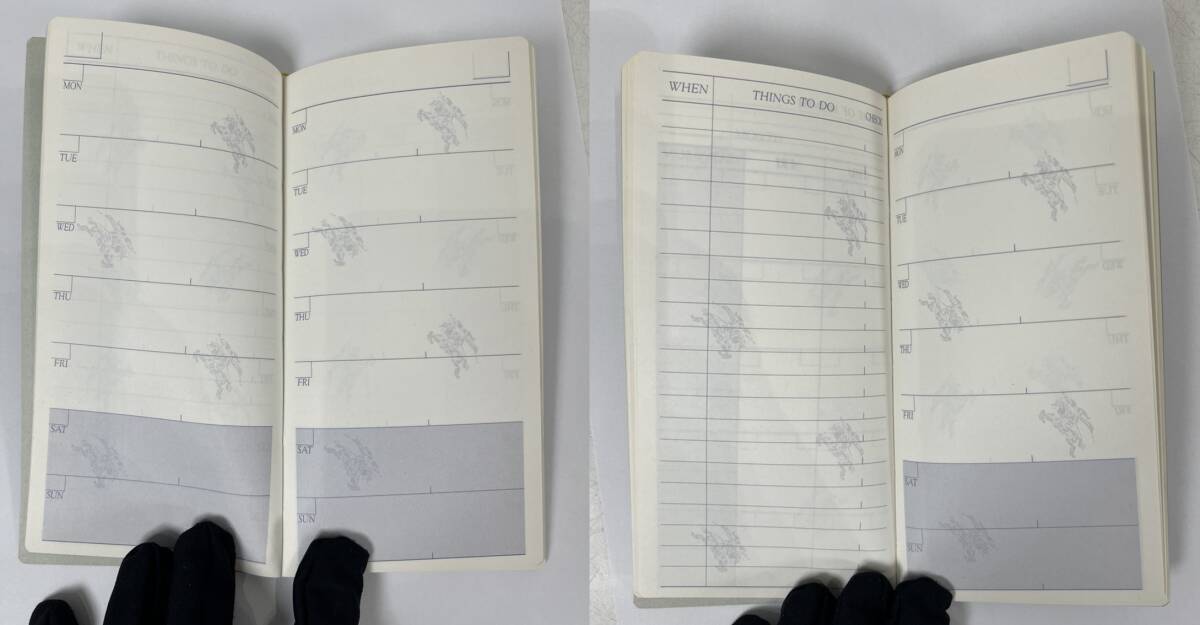 MON
TUE
WED
THU
FRI
SAT
SUN
MON
TUE
WED
THU
FRI
SAT
SUN
WHEN THINGS TO DO CHECK
MON
TUE
WED
THU
FRI
SAT
SUN